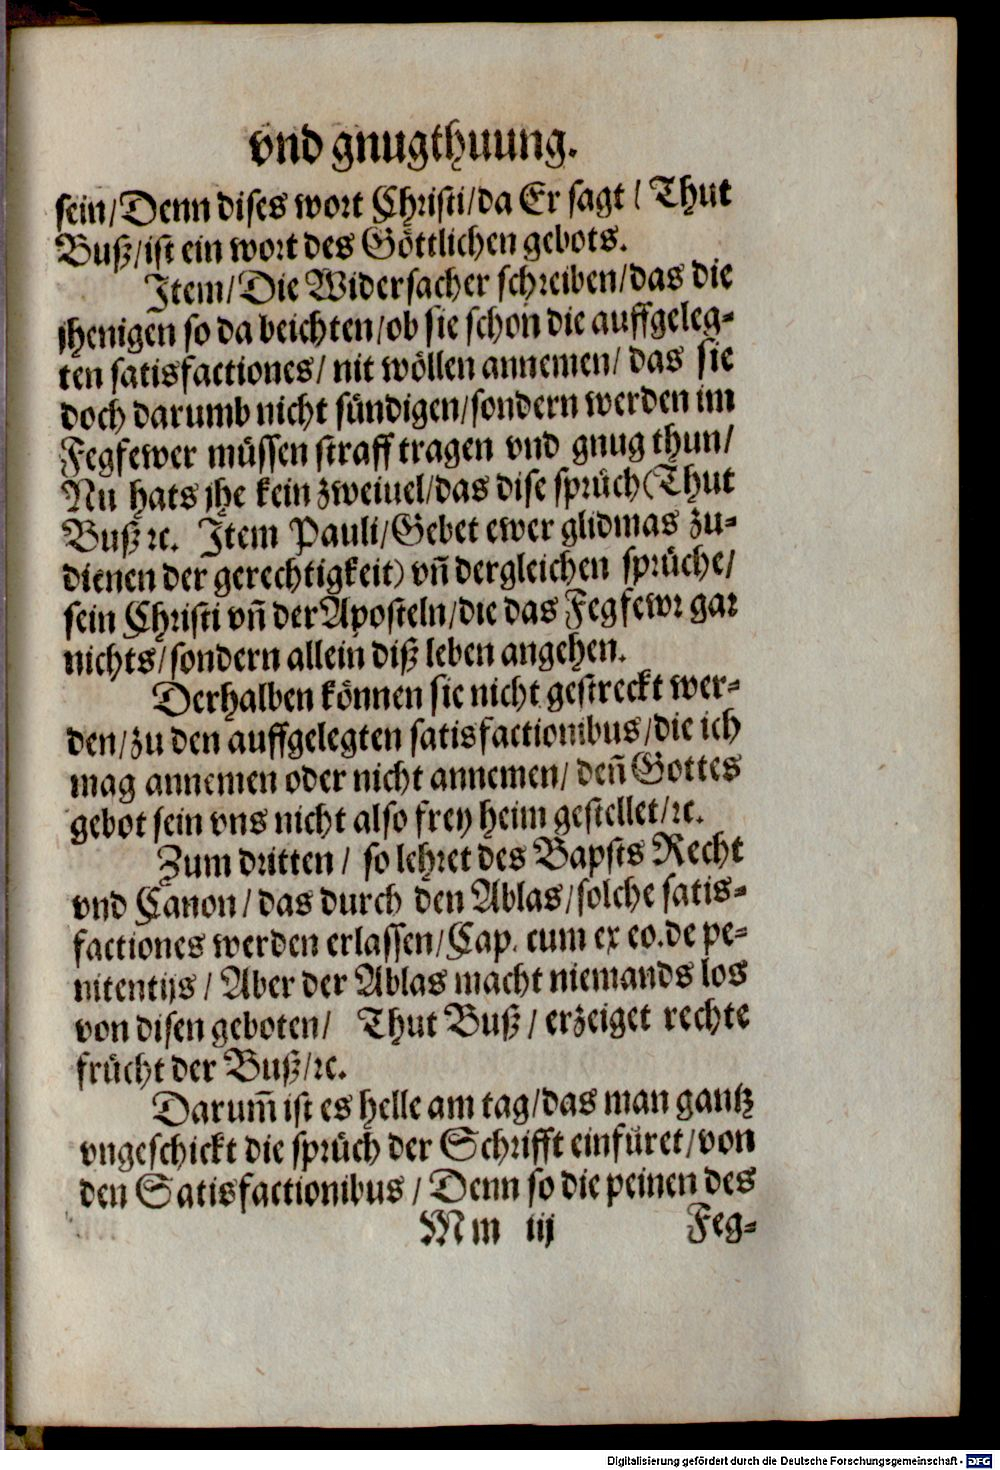 vnd gnugthuung.
sein/Denn dises wort Christi/da Er sagt/ Thut
Buß/ist ein wort des Göttlichen gebots.
Item/Die Widersacher schreiben/das die
jhenigen so da beichten/ob sie schon die auffgeleg-
ten satisfactiones/ nit wöllen annemen/ das sie
doch darumb nicht sündigen/sondern werden im
Fegfewer müssen straff tragen vnd gnug thun/
Nu hats jhe kein zweiuel/das dise sprüch(Thut
Buß ꝛc. Item Pauli/Gebet ewer glidmas zu-
dienen der gerechtigkeit) vñ dergleichen sprüche/
sein Christi vñ der Aposteln/die das Fegfewr gar
nichts/sondern allein diß leben angehen.
Derhalben können sie nicht gestreckt wer-
den/zu den auffgelegten satisfactionibus/die ich
mag annemen oder nicht annemen/ deñ Gottes
gebot sein vns nicht also frey heim gestellet/ꝛc.
Zum dritten/ so lehret des Bapsts Recht
vnd Canon/das durch den Ablas/solche satis-
factiones werden erlassen/Cap. cum ex eo. de pe-
nitentijs/ Aber der Ablas macht niemands los
von disen geboten/ Thut Buß/ erzeiget rechte
frücht der Buß/ꝛc.
Darum̃ ist es helle am tag/das man gantz
vngeschickt die sprüch der Schrifft einfüret/von
den Satisfactionibus/ Denn so die peinen des
Mm iij Feg-
Digitalisierung gefördert durch die Deutsche Forschungsgemeinschaft - DFG